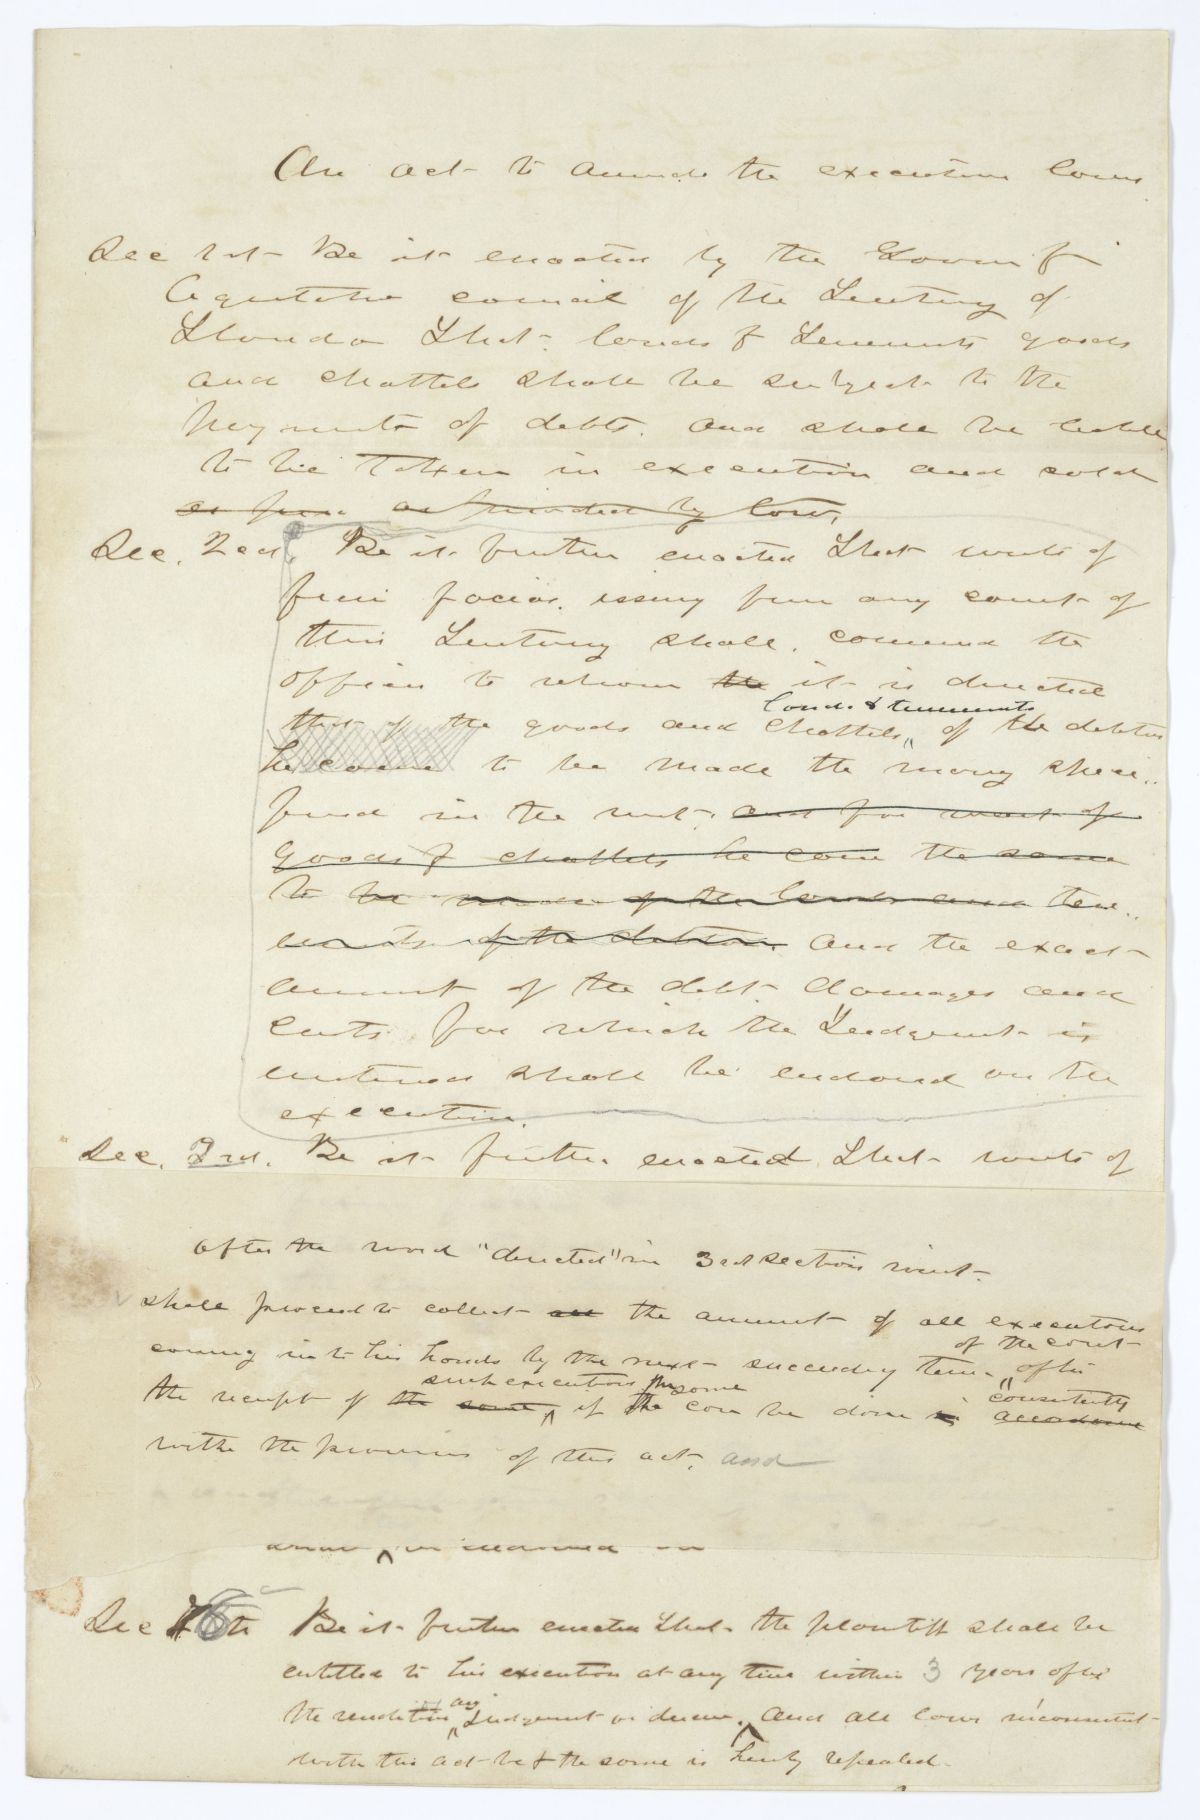 An act to amende the execution laws
Sec 1st Be it enacted by the Govern &
Legislative council of the Territory of
Florida That lands & Tenements goods
and chattels shall be subject to the
payments of debts. and shall be liable
to be Taken in execution and sold
as provided by law,
Sec. 2ed, Be it further enacted That writs of
fieri facias, issuing from any court of
this Territory shall, command the
officer to whom the it is directed
lands & tenements
that of the goods and chattels of the debtor
he cause to be made the money speci..
fied in the writ, and for want of
goods & chattels he cause the same
to be made of the lands and ten..
ements of the debtor. and the exact
amount of the debt damages and
costs for which the Judgement is
entered shall be endorsed on the
execution.
Sec. 3rd. Be it further enacted That writs of
after the word "directed" in 3ed section insert
shall proceed to collect all the amount of all executions
of the court
coming into his hands by the next succeeding term, after
such executions the same consistently
the receipt of the same, if the can be done in accordance
withe the provisions of this act. and
Sec 6th Be it further enacted That the plaintiff shall be
entitled to his execution at any time within 3 years after
any
the rendition Judgement or decree, and all laws inconsistent
with this act be & the same is hereby repealed.